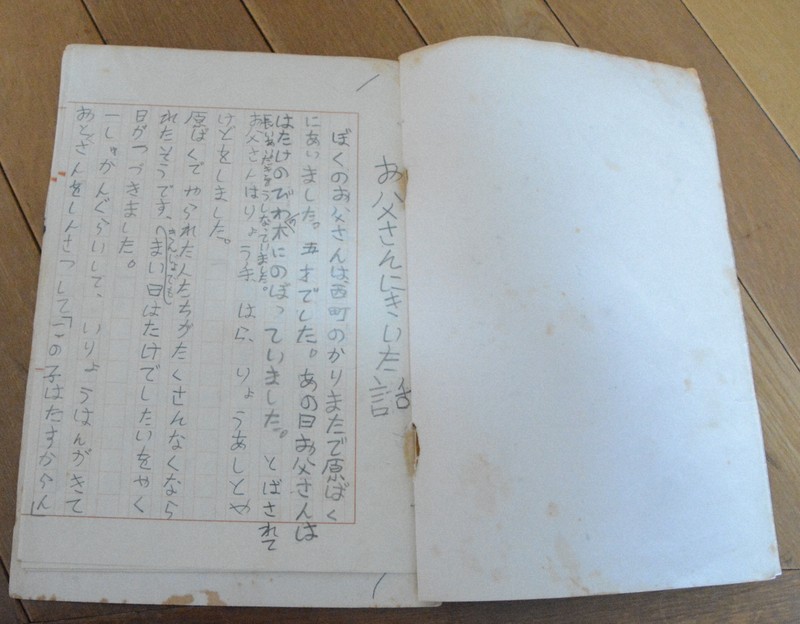 お父さんにきいた話
ぼくのお父さんは西町のかりまたで原ばく
にあいました。五才でした。あの日お父さんは
はたけのびわの木にのぼっていました。とばされて
長いあいだきをうしなっていました。
お父さんはりょう手、はら、りょうあしとや
けどをしました。
原ばくでやられた人たちがたくさんなくなら
れたそうです。まい日はたけでしたいをやく
日がつづきました。
一しゅうかんぐらいして、いりょうはんがきて
おとうさんをしんさつして「この子はたすからん」